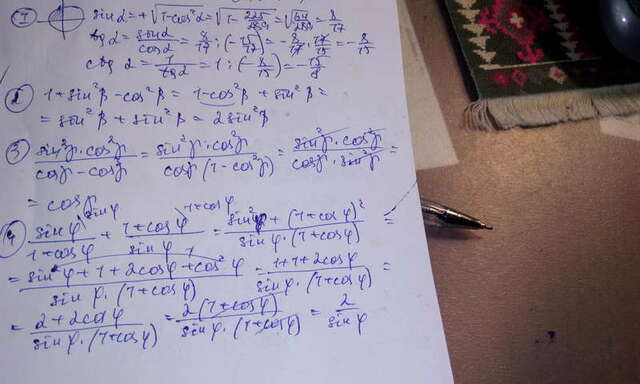 1 sin α = +√1-cos²α = √1-225/289 = √64/289 = 8/17
tg α = sin α/cos α = 8/17 : (-15/17) = -8/17 · 17/15 = -8/15
ctg α = 1/tg α = 1 : (-8/15) = -15/8
2 1+sin²β-cos²β = 1-cos²β + sin²β =
= sin²β + sin²β = 2sin²β
3 sin²γ·cos²γ/cosγ-cos³γ = sin²γ·cos²γ/cosγ(1-cos²γ) = sin²γ·cos²γ/cosγ·sin²γ =
= cosγ
4 sinφ/1+cosφ + 1+cosφ/sinφ = sin²φ+(1+cosφ)²/sinφ·(1+cosφ) =
= sin²φ+1+2cosφ+cos²φ/sinφ·(1+cosφ) = 1+1+2cosφ/sinφ·(1+cosφ) =
= 2+2cosφ/sinφ·(1+cosφ) = 2(1+cosφ)/sinφ·(1+cosφ) = 2/sinφ